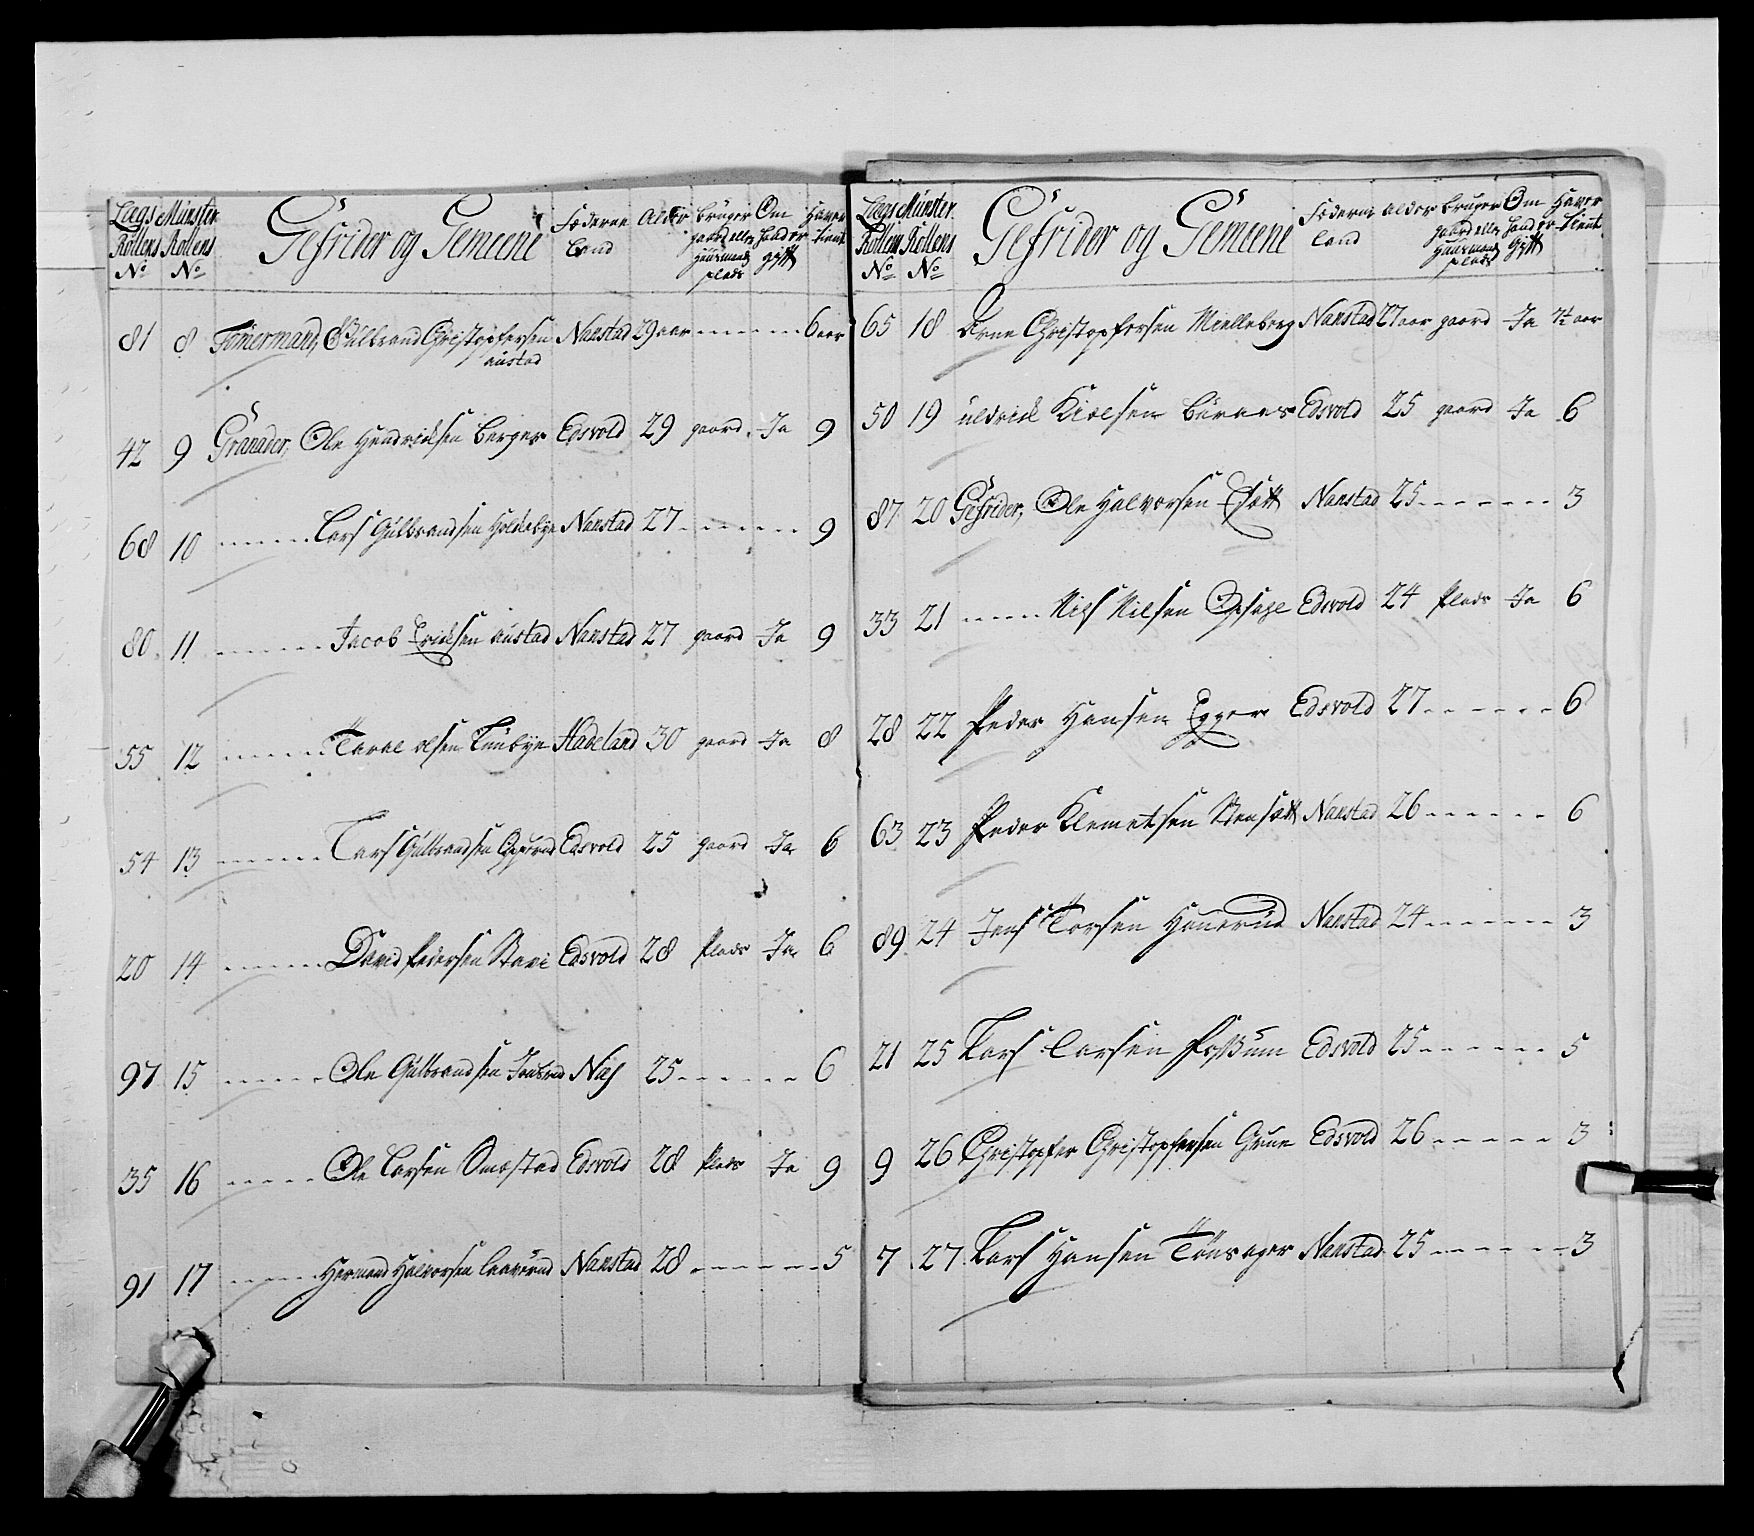 Lægs Münster Gefrider og Gemeene Føderne Alder Bruger Om Haver
Rollens Rollens Land gaard eller hand er tient
No No Huusmands gift
plads
81 8 Tømermand, Gulbrand Christophersen Nanstad 29 aar - - - - - 6 aar
austad
42 9 Granader, Ole Hendrichsen Berger Edsvold 29 gaard Ja 9
68 10 - - - - Lars Gulbrandsen Holdebye Nanstad 27 - - - - - 9
80 11 - - - - Jacob Erichsen austad Nanstad 27 gaard Ja 9
55 12 - - - - olsen Hadeland 30 gaard Ja 8
54 13 - - - - Lars Gulbrandsen Edsvold 25 gaard Ja 6
20 14 - - - - David Pedersen Edsvold 28 Plads Ja 6
97 15 - - - - Ole Gulbrandsen Næs 25 - - - - - 6
35 16 - - - - Ole Larsen Smestad Edsvold 28 Plads Ja 9
91 17 - - - - Hermand Halvorsen Nanstad 28 - - - - - 5
Lægs Münster Gefrider og Gemeene Føderne Alder Bruger Om Haver
Rollens Rollens Land gaard eller hand er tient
No No Huusmands gift
plads
65 18 Arne Christophersen Mielleborg Nanstad 27 aar gaard Ja 7½ aar
50 19 Kielsen Edsvold 25 gaard Ja 6
87 20 Gefrider, Ole Halvorsen Nanstad 25 - - - - - 3
33 21 - - - - Niels Nilsen Opsage Edsvold 24 Plads Ja 6
28 22 Peder Hansen Egger Edsvold 27 - - - - - 6
63 23 Peder Klemetsen Nanstad 26 - - - - - 6
89 24 Jens Torsen Nanstad 24 - - - - - 3
21 25 Lars Larsen Fossum Edsvold 25 - - - - - 5
9 26 Christopher Christophersen Edsvold 26 - - - - - 3
7 27 Lars Hansen Tønsager Nanstad 25 - - - - - 3